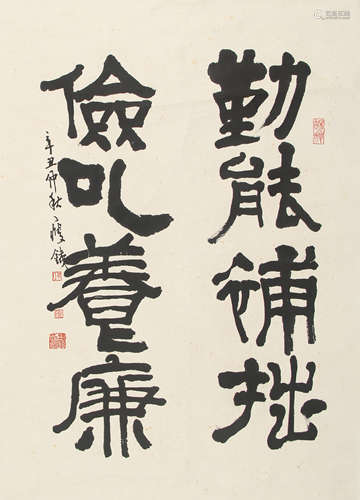 勤能補拙
儉以養廉
辛丑仲秋